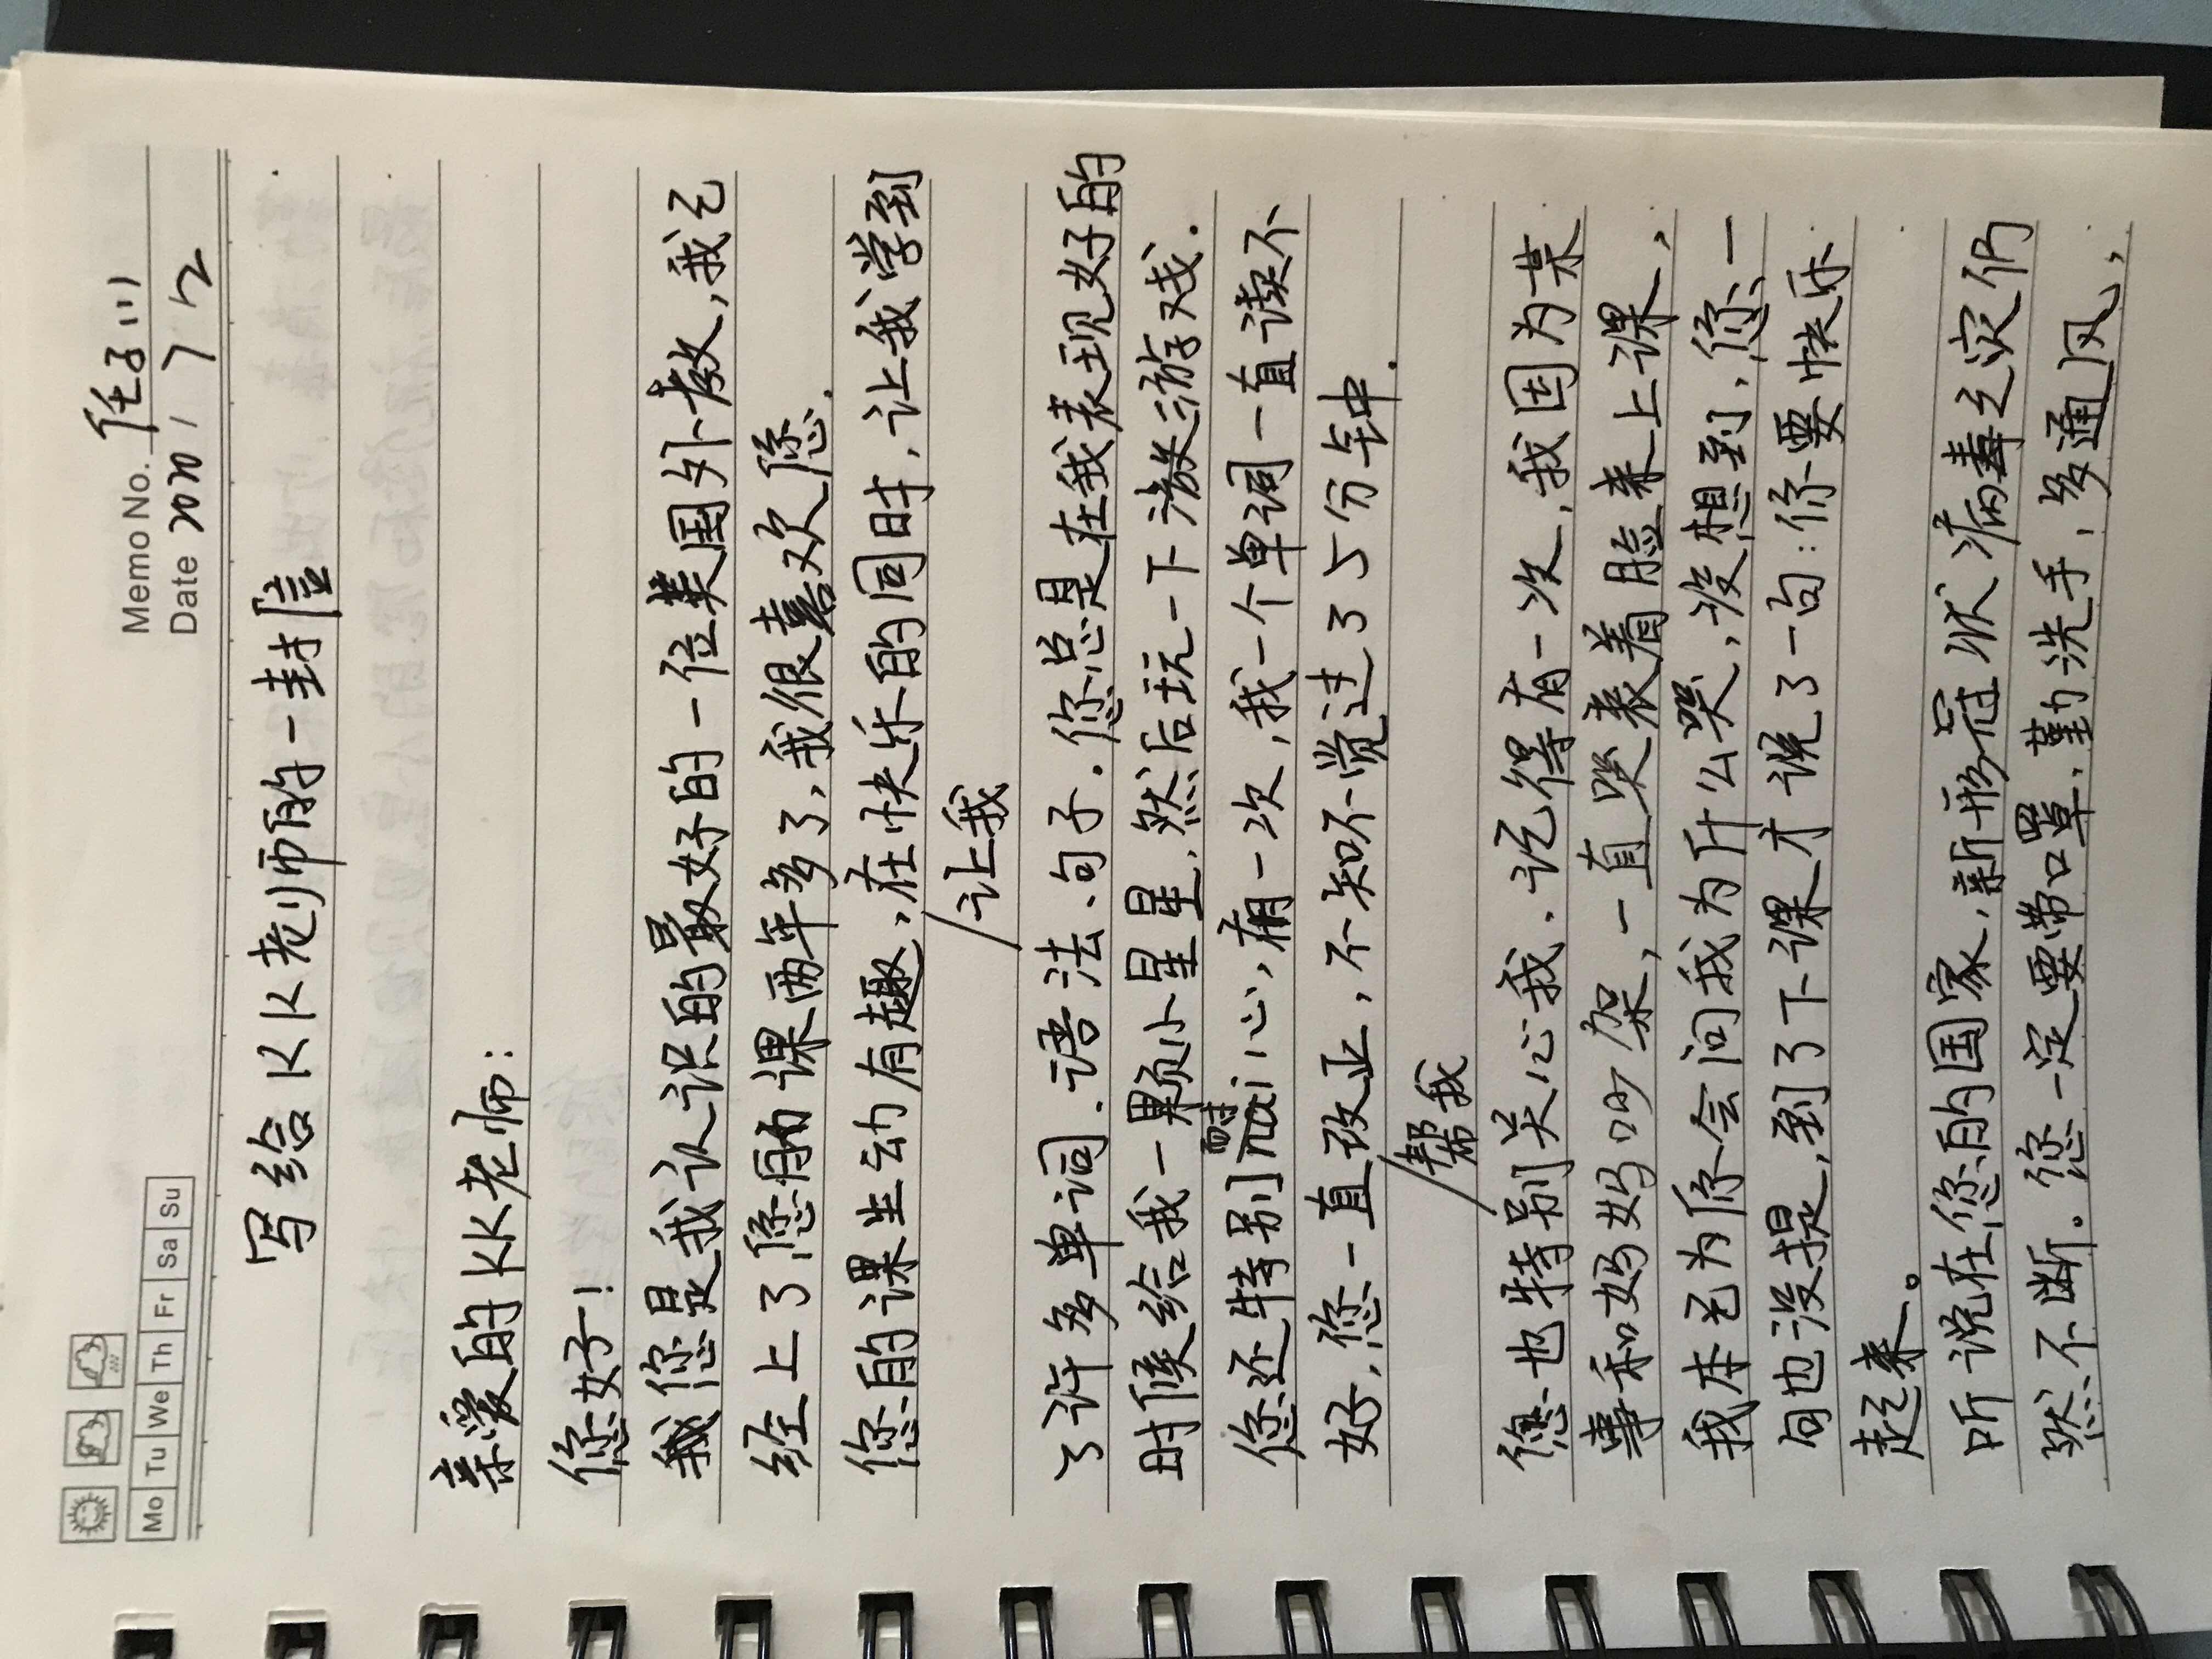 Memo No. 任子川
Mo Tu We Th Fr Sa Su
Date 2020 / 7 2
写给KK老师的一封信
亲爱的KK老师:
您好!
我您是我认识的最好的一位美国外教,我已
经上了您的课两年多了,我很喜欢您.
您的课生动有趣,在快乐的同时,让我学到
让我
了许多单词.语法、句子.您总是在我表现好的
时候给我一颗小星星,然后玩一下激流游戏.
耐
您还特别nai心,有一次,我一个单词一直读不
好,您一直改正,不知不觉过了5分钟.
帮我
您也特别关心我.记得有一次,我因为某
事和妈妈吵架,一直哭丧着脸来上课,
我本已为你会问我为什么哭,没想到,您一
句也没提,到了下课才说了一句:你要快乐
起来。
听说在您的国家,新形冠状病毒之灾仍
然不断。您一定要带口罩.勤洗手,多通风,